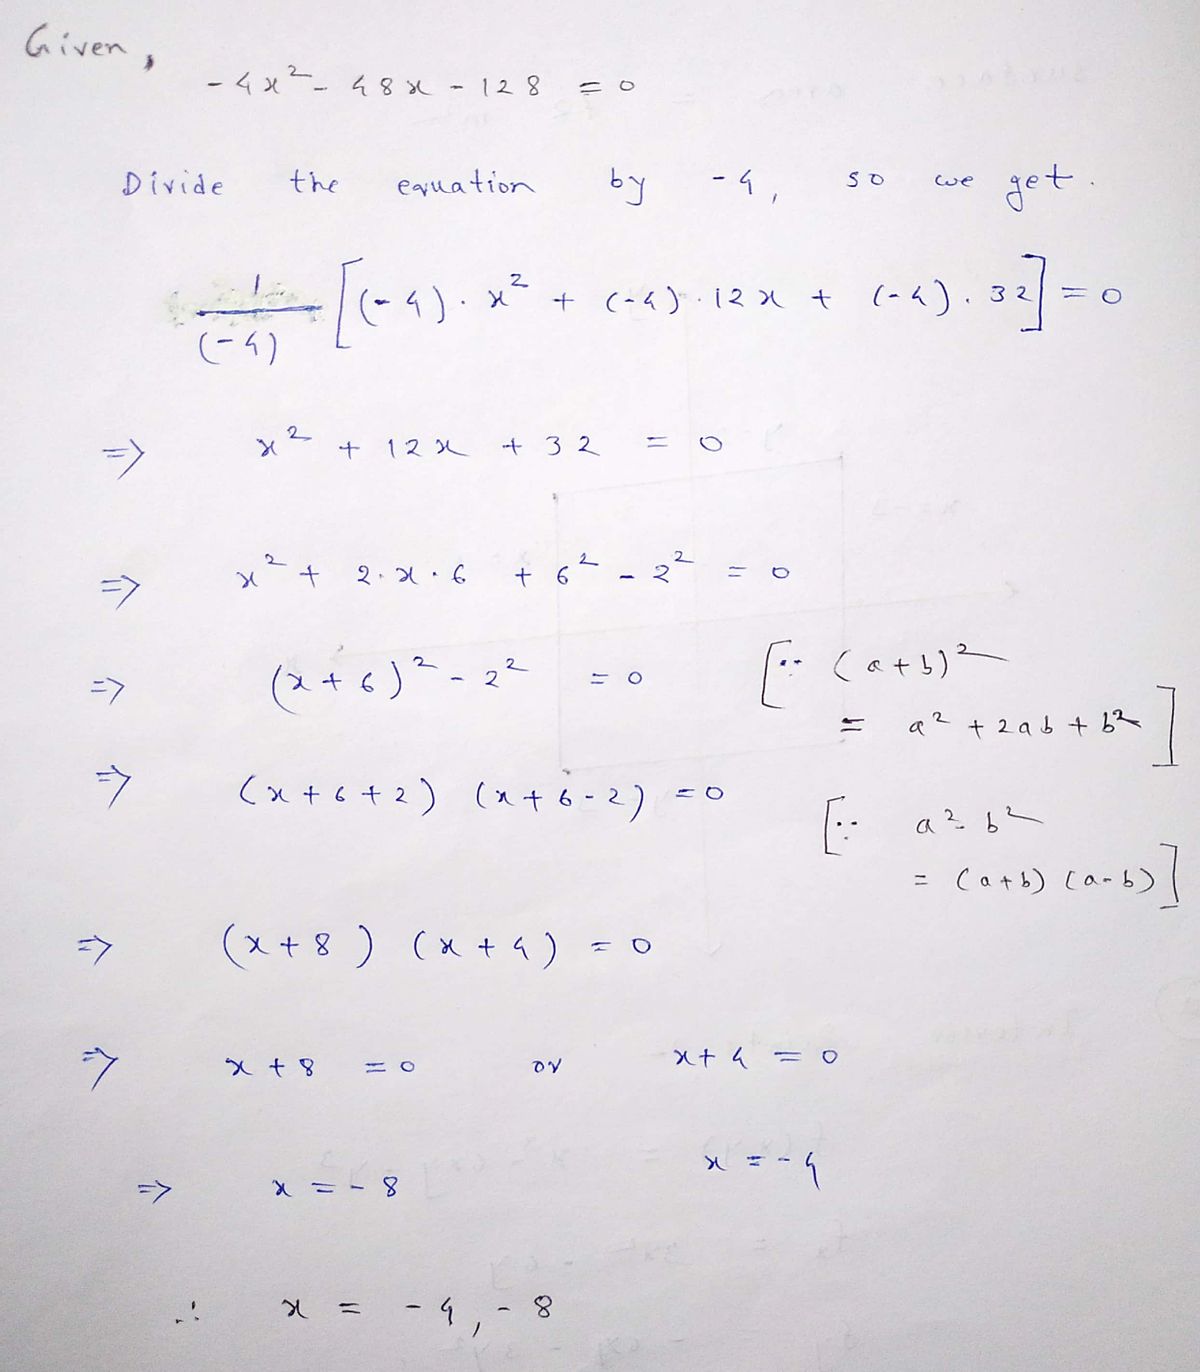 Given,
-4x² - 48x - 128 = 0
Divide the equation by -4, so we get.
1/(-4) [(-4).x² + (-4).12x + (-4).32] = 0
=> x² + 12x + 32 = 0
=> x² + 2.x.6 + 6² - 2² = 0
=> (x+6)² - 2² = 0 [∵ (a+b)²
= a² + 2ab + b²]
=> (x+6+2) (x+6-2) = 0
[∵ a² - b²
= (a+b) (a-b)]
=> (x+8) (x+4) = 0
=> x+8 = 0 or x+4 = 0
=> x = -8 x = -4
∴ x = -4, -8